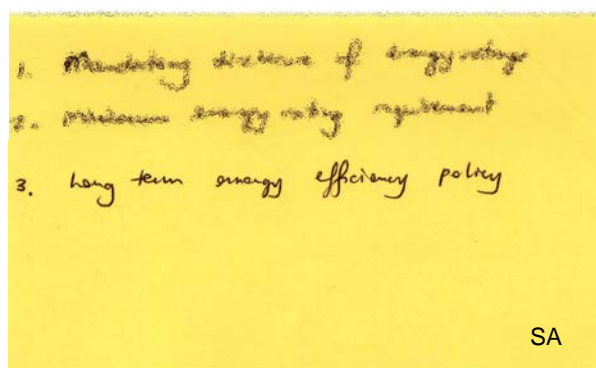 1. Mandatory disclosure of energy ratings
2. Minimum energy rating requirement
3. Long term energy efficiency policy
SA